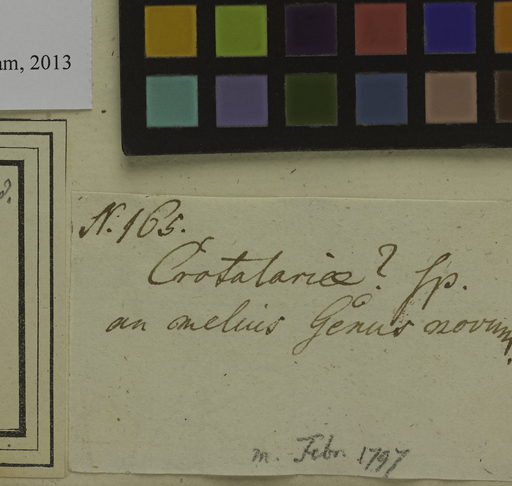 am, 2013
N. 165.
Crotalariæ? sp.
an melius Genus novum?
m. Febr. 1797